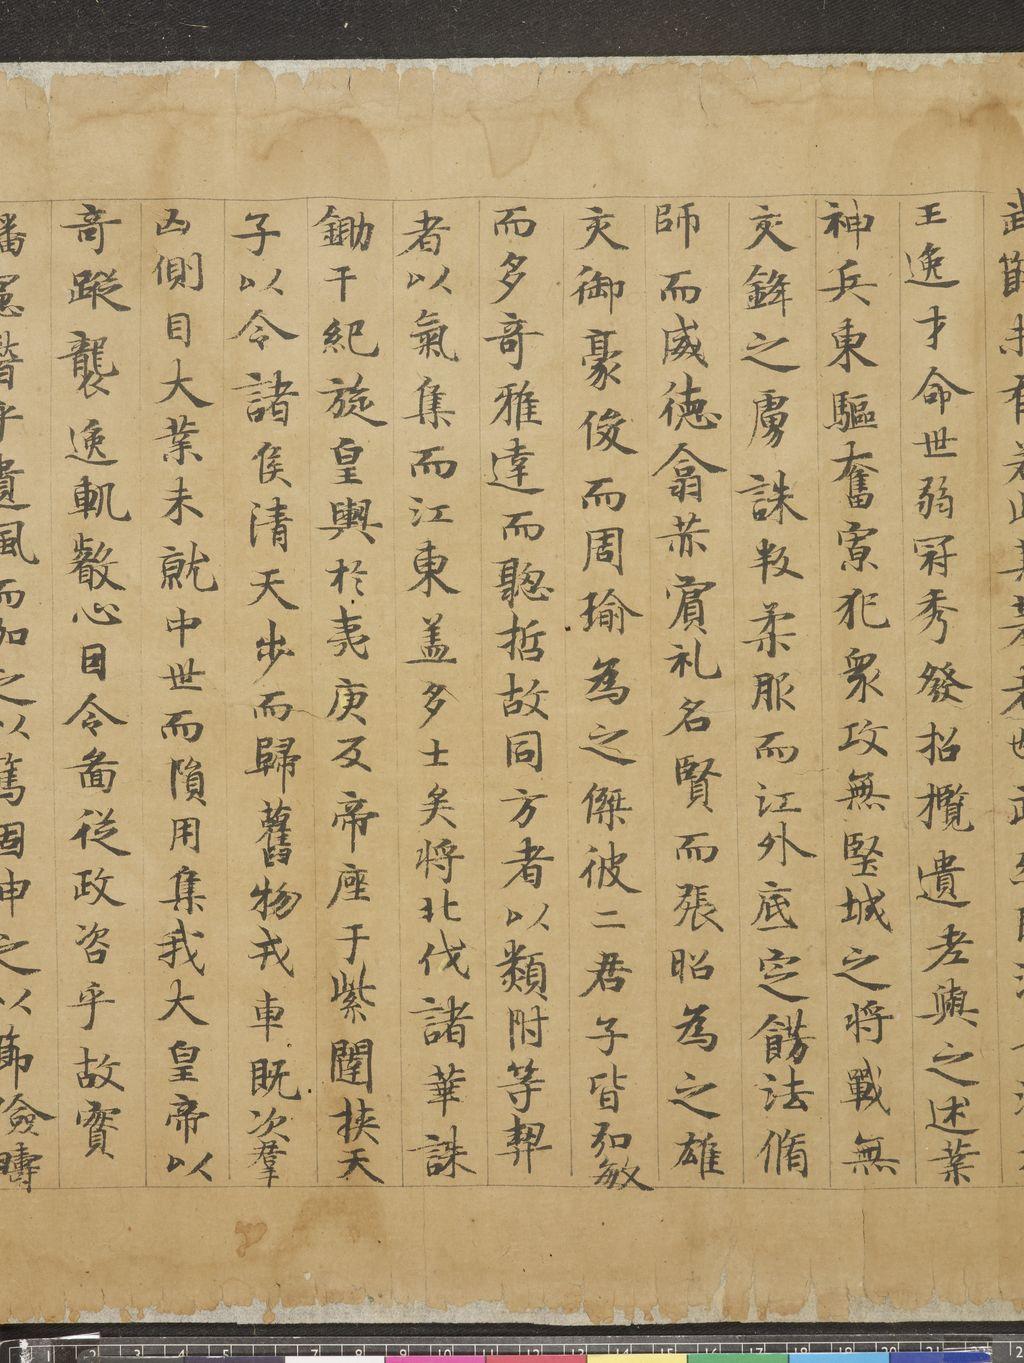 武節未有若此其著者世武
王逸才命世弱冠秀發招攬遺老與之述業
神兵東驅奮寡犯衆攻無堅城之將戰無
交鋒之虜誅叛柔服而江外底定飭法脩
師而威德翕赫賓礼名賢而張昭為之雄
交御豪俊而周瑜為之傑彼二君子皆弘敏
而多奇雅達而聰哲故同方者以類附等契
者以氣集而江東盖多士矣將北伐諸華誅
鋤干紀旋皇輿於夷庚反帝座于紫闥挾天
子以令諸侯清天步而歸舊物戎車既次羣
凶側目大業未就中世而隕用集我大皇帝以
奇蹤襲逸軌叡心因令啚從政咨乎故實
播憲稽乎遺風而加之以篤固申之以節儉疇